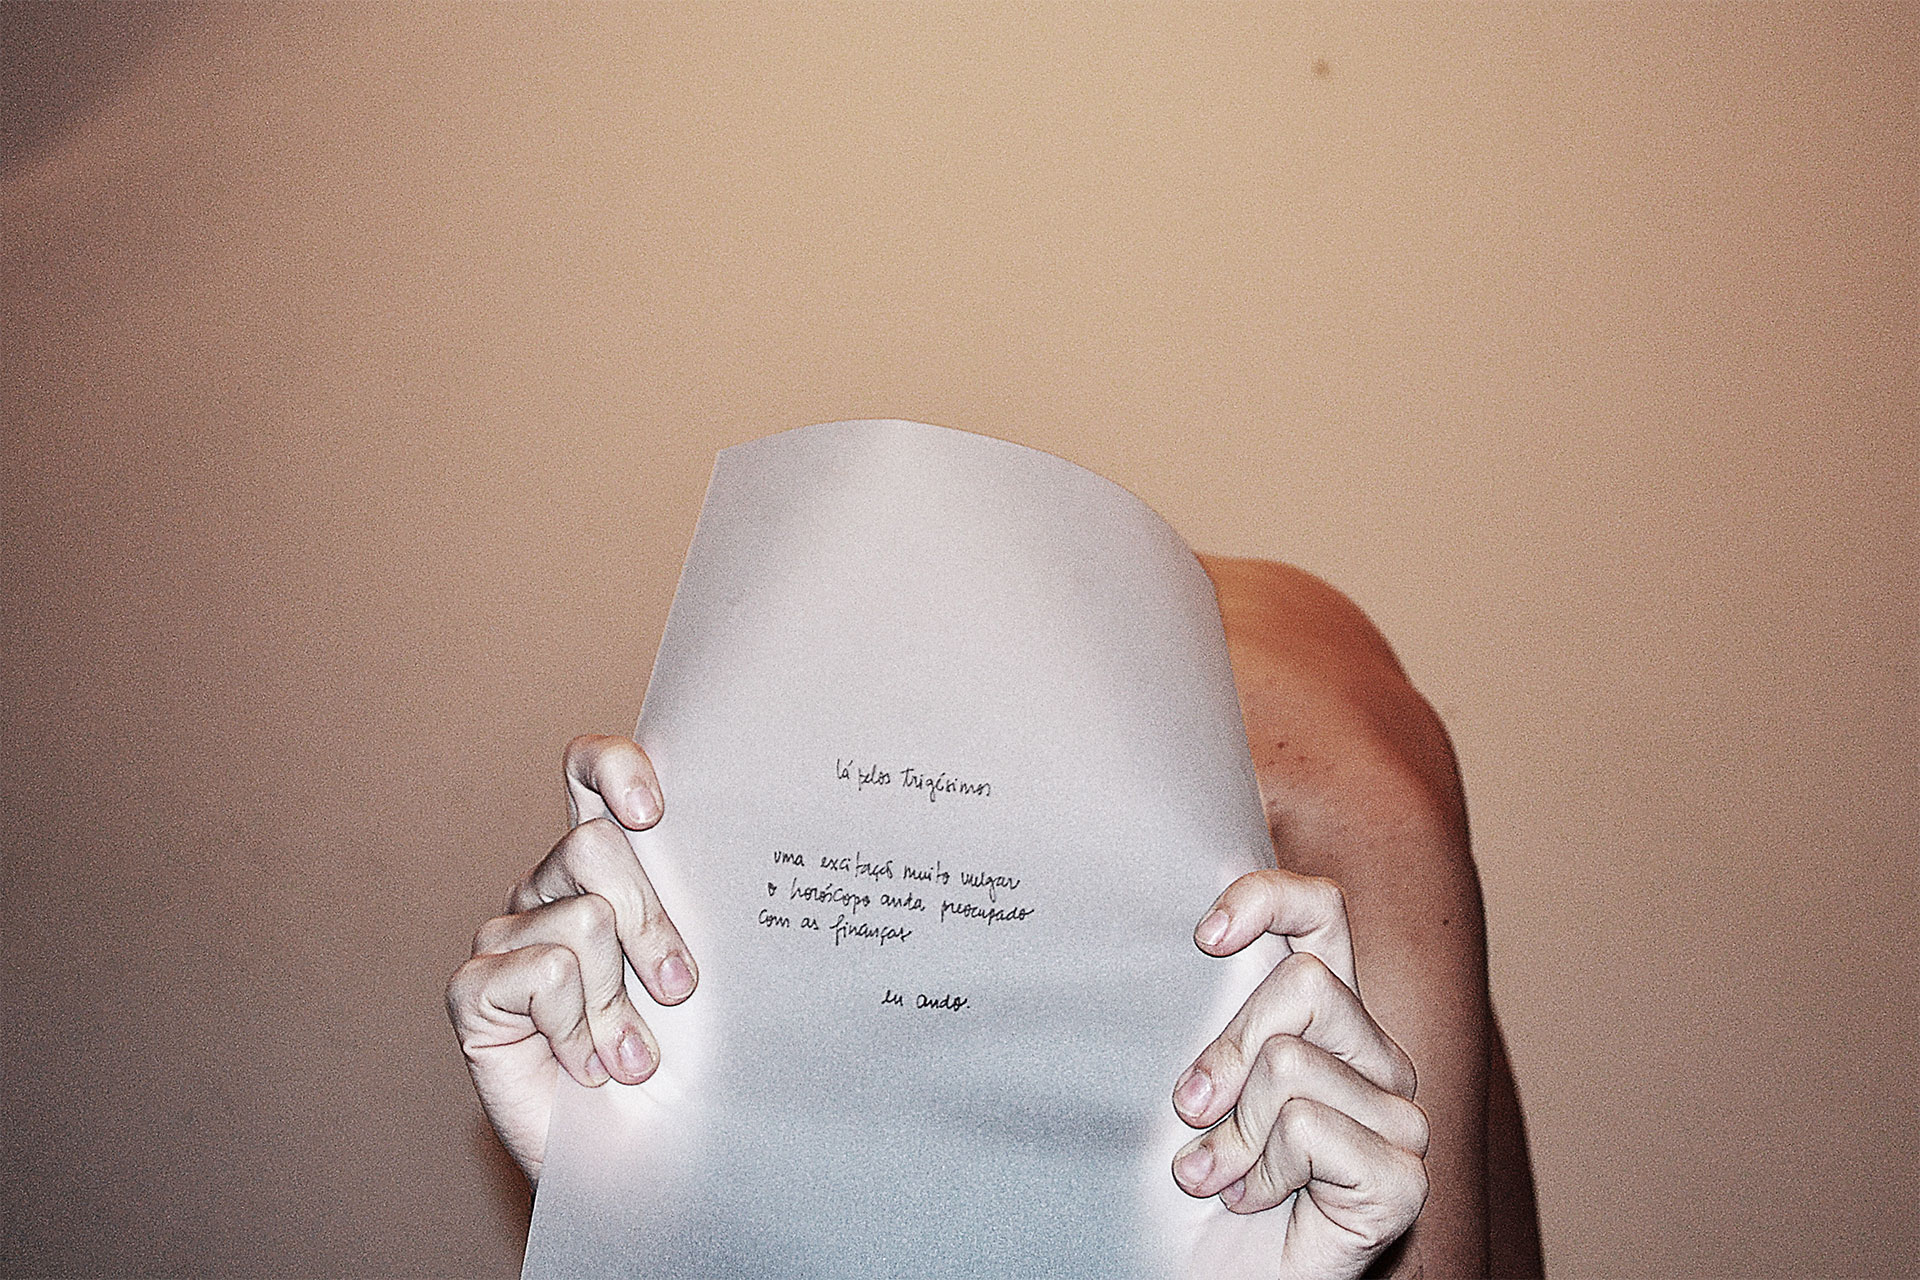 lá pelos trigésimos
uma excitação muito vulgar
o horóscopo anda preocupado
com as finanças
eu ando.